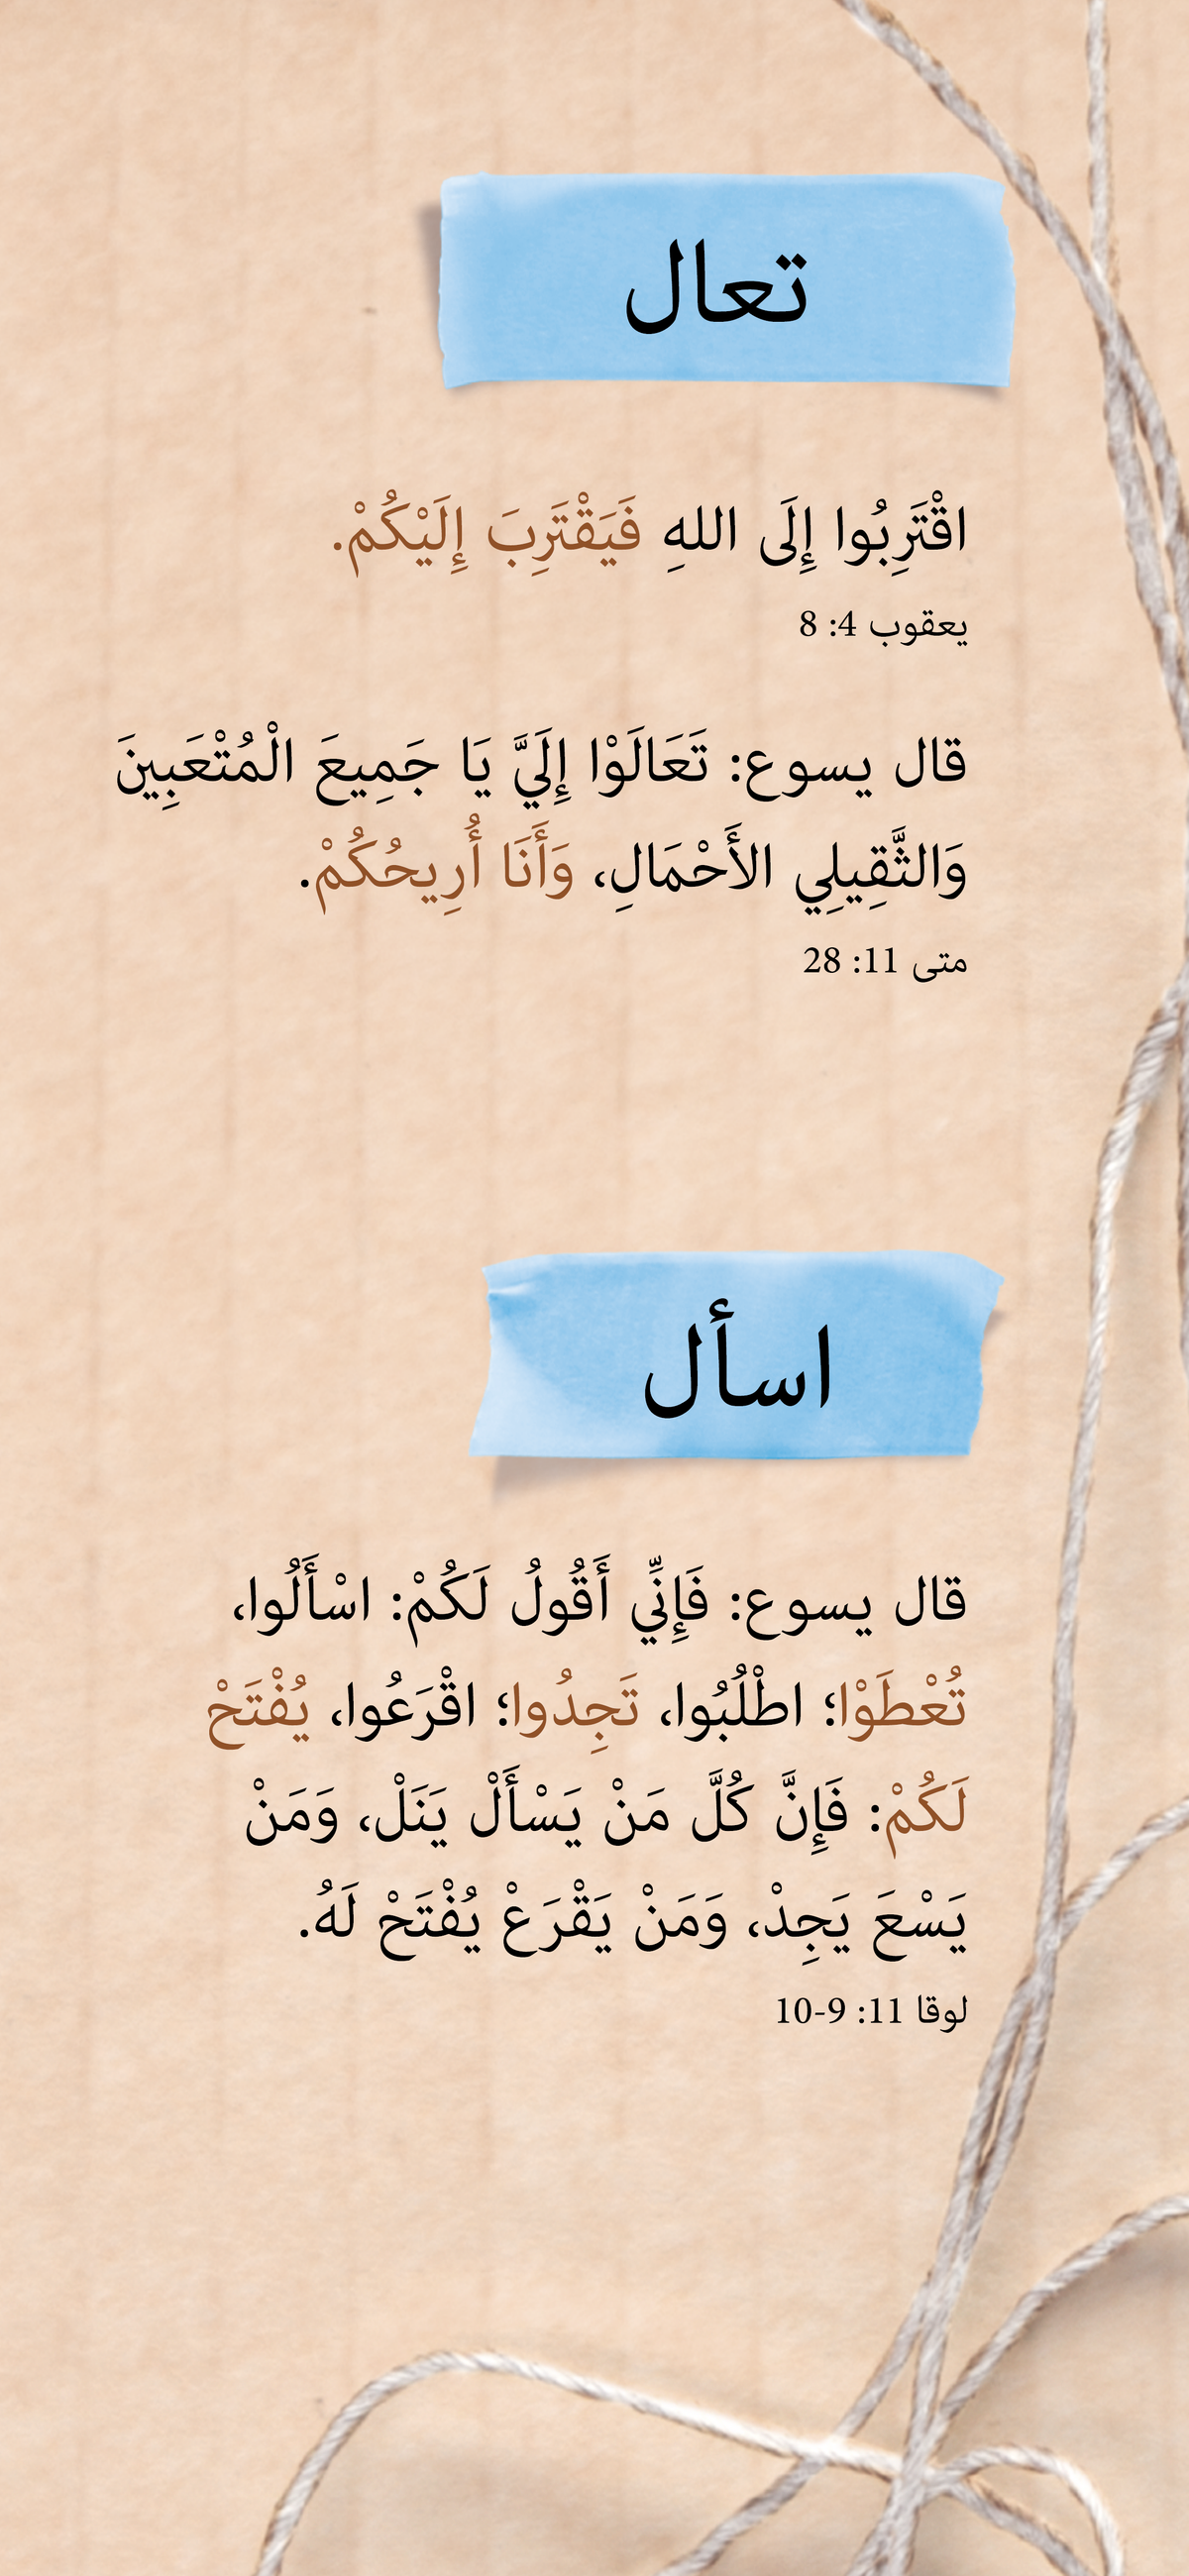 تعال
اقْتَرِبُوا إِلَى اللهِ فَيَقْتَرِبَ إِلَيْكُمْ.
يعقوب 4: 8
قال يسوع: تَعَالَوْا إِلَيَّ يَا جَمِيعَ الْمُتْعَبِينَ
وَالثَّقِيلِي الأَحْمَالِ، وَأَنَا أُرِيحُكُمْ.
متى 11: 28
اسأل
قال يسوع: فَإِنِّي أَقُولُ لَكُمْ: اسْأَلُوا،
تُعْطَوْا؛ اطْلُبُوا، تَجِدُوا؛ اقْرَعُوا، يُفْتَحْ
لَكُمْ: فَإِنَّ كُلَّ مَنْ يَسْأَلْ يَنَلْ، وَمَنْ
يَسْعَ يَجِدْ، وَمَنْ يَقْرَعْ يُفْتَحْ لَهُ.
لوقا 11: 9-10